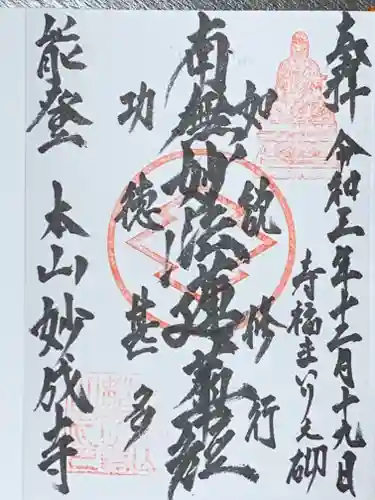 奉拝 令和三年十二月十九日
如説修行
南無妙法蓮華経
功徳甚多
能登 本山妙成寺